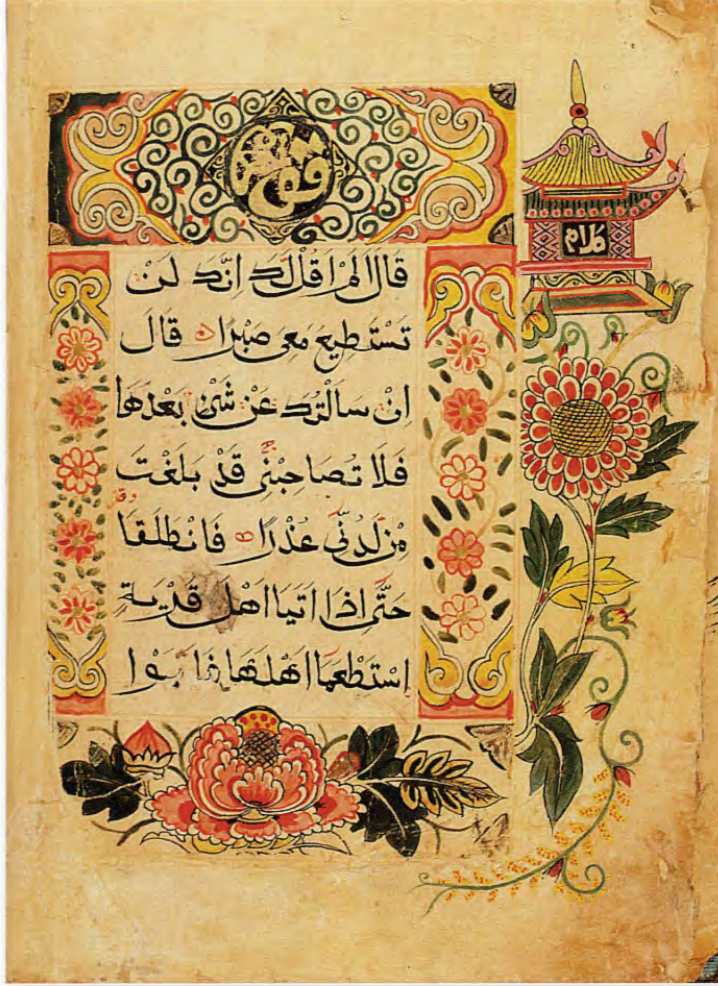 قَالَ اَلَمْ اَقُلْ لَكَ اِنَّكَ لَنْ
تَسْتَطِيعَ مَعِىَ صَبْرًا قَالَ
اِنْ سَاَلْتُكَ عَنْ شَىْءٍ بَعْدَهَا
فَلَا تُصَاحِبْنِى قَدْ بَلَغْتَ
مِنْ لَدُنِّى عُذْرًا فَانْطَلَقَا
حَتَّى اِذَا اَتَيَا اَهْلَ قَرْيَةٍ
اسْتَطْعَمَا اَهْلَهَا فَاَبَوْا